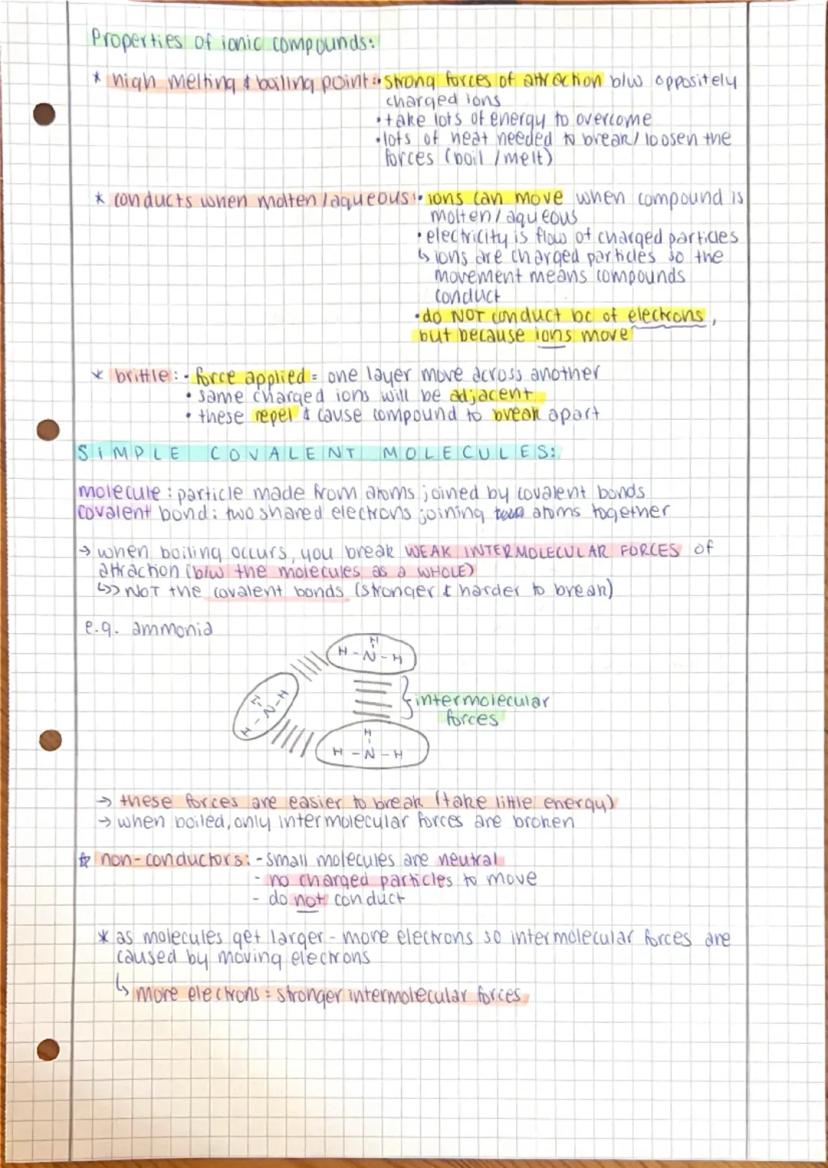 Properties of ionic compounds:
* high melting & boiling point: • strong forces of attraction b/w oppositely
charged ions
• take lots of energy to overcome
• lots of heat needed to break/loosen the
forces (boil/melt)
* conducts when molten/aqueous: • ions can move when compound is
molten/aqueous
• electricity is flow of charged particles
↳ ions are charged particles so the
movement means compounds
conduct
• do NOT conduct bc of electrons,
but because ions move
* brittle: • force applied = one layer move across another
• same charged ions will be adjacent
• these repel & cause compound to break apart
SIMPLE COVALENT MOLECULES:
molecule: particle made from atoms joined by covalent bonds
covalent bond: two shared electrons joining atoms together
→ when boiling occurs, you break WEAK INTERMOLECULAR FORCES of
attraction (b/w the molecules as a WHOLE)
↳> NOT the covalent bonds (stronger & harder to break)
e.g. ammonia
H
H - N - H
H
H - N - H
intermolecular
forces
H
H - N - H
→ these forces are easier to break (take little energy)
→ when boiled, only intermolecular forces are broken
* non-conductors: - small molecules are neutral
- no charged particles to move
- do not conduct
* as molecules get larger - more electrons so intermolecular forces are
caused by moving electrons
↳ more electrons = stronger intermolecular forces